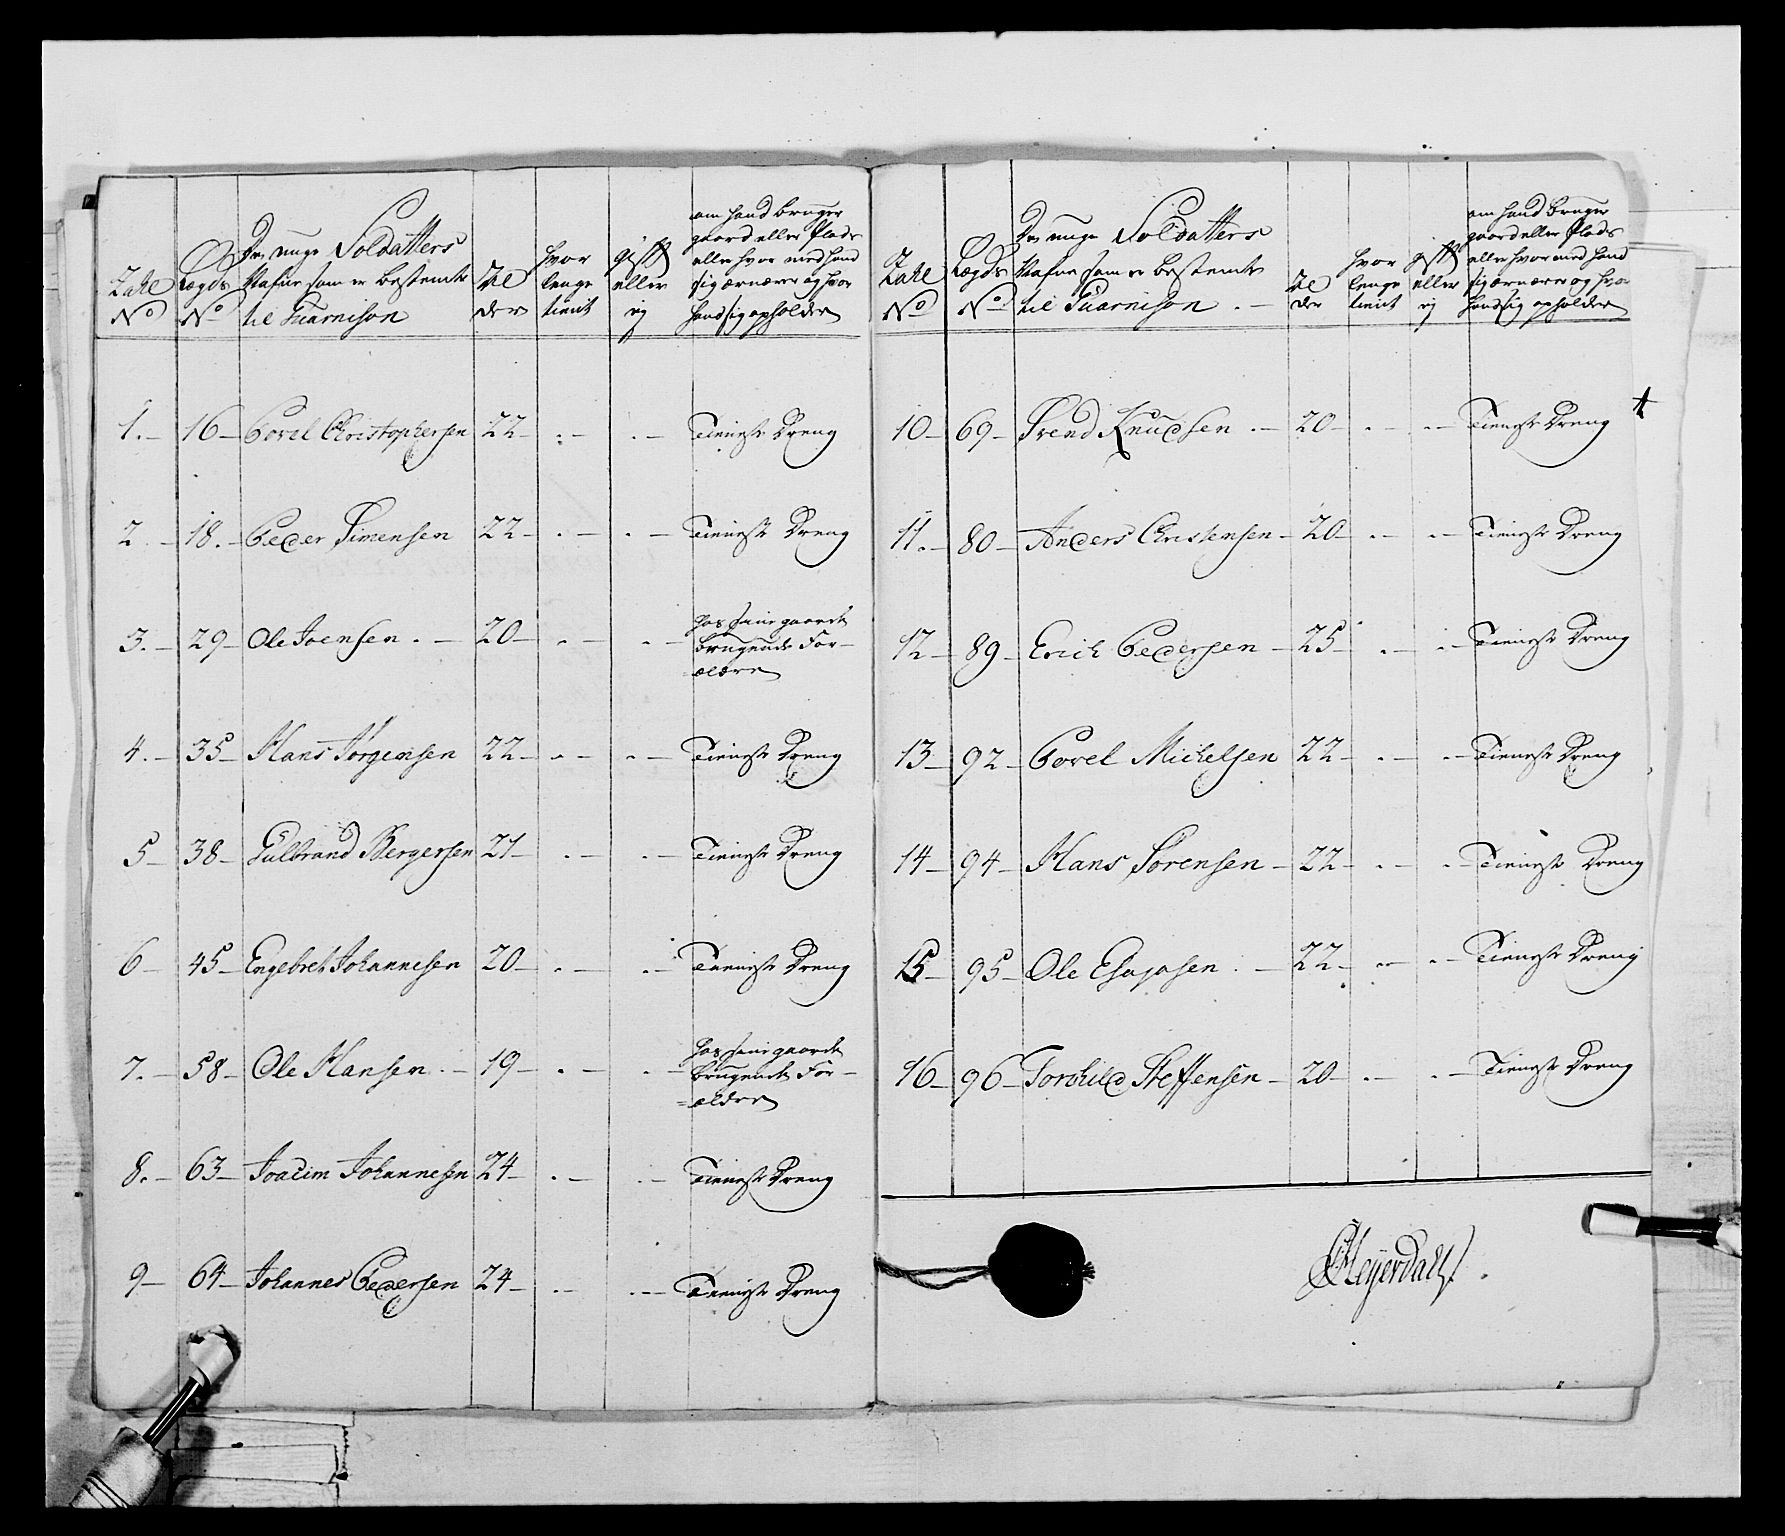 Zahl No
Lægds No
De unge Soldatters
Nafne som er bestemte
til Guarnison
Al
der
hvor
lenge
tient
gifft
eller
ej
om hand bruger
gaard eller Plads
eller hvor med hand
sig ernærer og hvor
hand sig opholder
1.- 16- Povel Christophersen 22- Tieneste Dreng
2.- 18.- Peder Simensen 22- Tieneste Dreng
3.- 29- Ole Joensen.- 20- hos sine gaard
brugende For-
=ældre
4.- 35- Hans Jörgensen 22- Tieneste Dreng
5- 38- Gulbrand Bergersen 21- Tieneste Dreng
6- 45- Engebret Johannesen 20- Tieneste Dreng
7.- 58- Ole Hansen.- 19- hos sine gaard
brugende For-
=ældre
8.- 63- Joacim Johannesen 24- Tieneste Dreng
9- 64- Johannes Pedersen 24- Tieneste Dreng
Zahl No
Lægds No
De unge Soldatters
Nafne som er bestemte
til Guarnison.-
Al
der
hvor
lenge
tient
gifft
eller
ej
om hand bruger
gaard eller Plads
eller hvor med hand
sig ernærer og hvor
hand sig opholder
10- 69- Svend Knudsen.- 20- Tieneste Dreng
11.- 80- Anders Christensen- 20- Tieneste Dreng
12- 89- Erich Pedersen- 25- Tieneste Dreng
13- 92- Povel Michelsen 22- Tieneste Dreng
14- 94- Hans Sörensen- 22- Tieneste Dreng
15- 95- Ole Esajasen.- 22- Tieneste Dreng
16- 96- Torchild Steffensen- 20- Tieneste Dreng
Heyerdahl